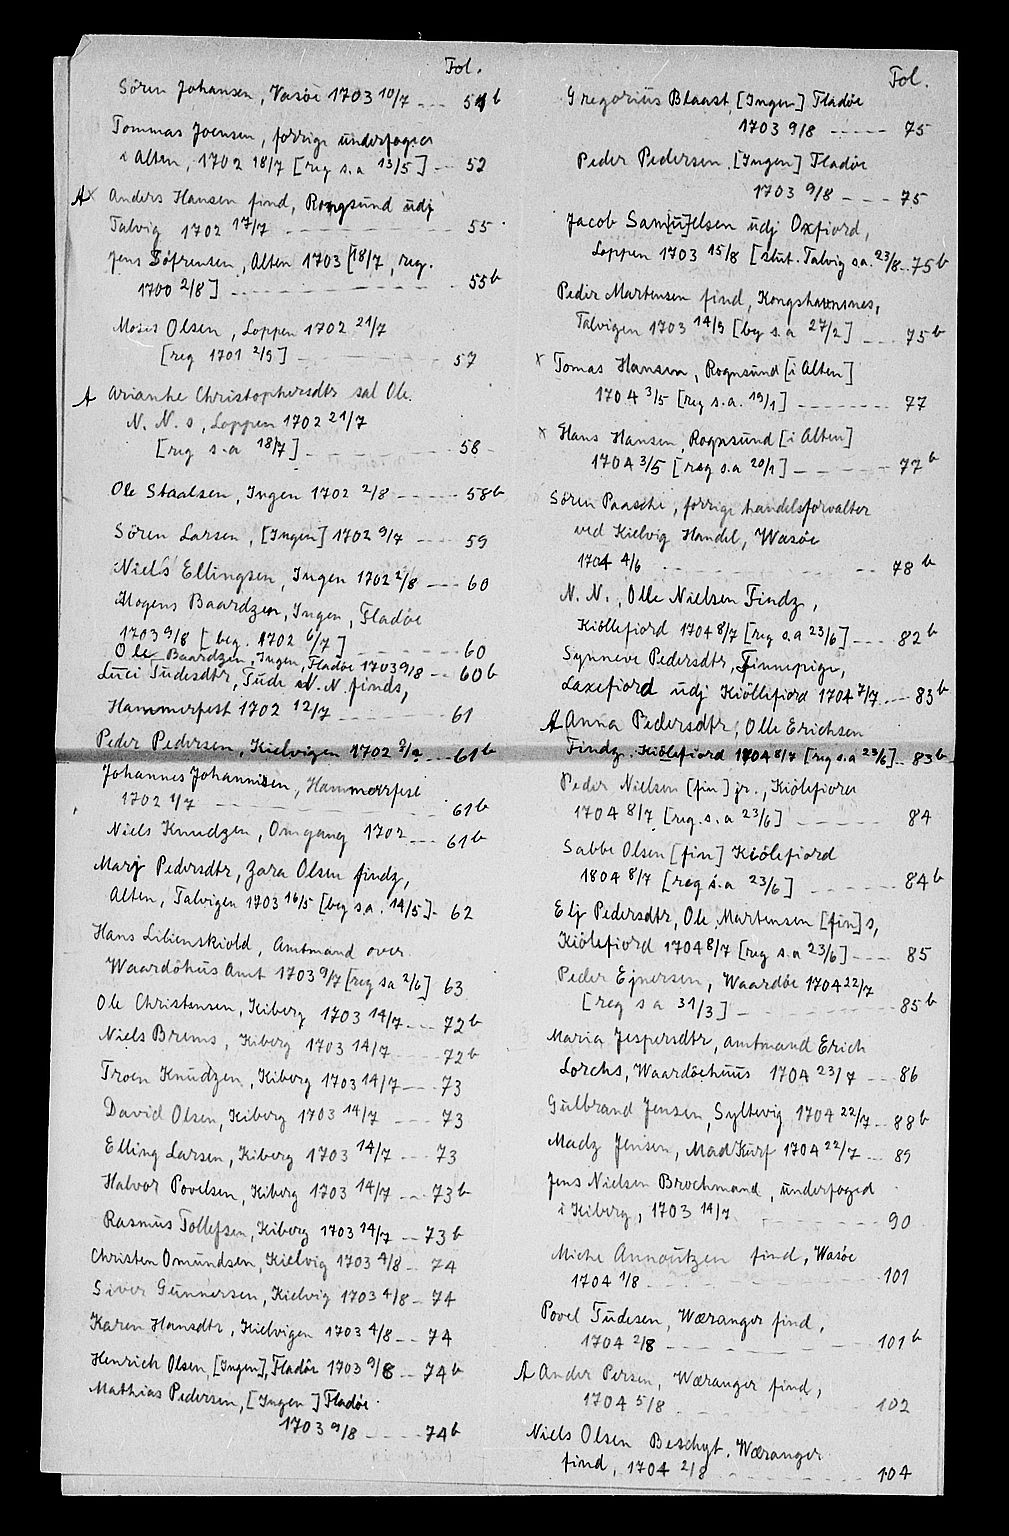 Fol.
Sören Johansen, Vasöe 1703 10/7 --- 51b
Tommas Joensen, forrige underfoged
i Alten, 1702 18/7 [reg s.a 13/5] -- 52
A x Anders Hansen find, Rognsund udj
Talvig 1702 17/7 - - - - - - - 55
Jens Söfrensen, Alten 1703 [18/7, reg.
1700 2/8] - - - - - - - - 55b
Moses Olsen, Loppen 1702 21/7
[reg 1701 2/9] - - - - - - - 57
A Arianke Christophersdtr sal Ole
N. N. s, Loppen 1702 21/7
[reg s.a 18/7] - - - - - - - 58
Ole Staalsen, Ingen 1702 2/8 ---- 58b
Sören Larsen, [Ingen] 1702 9/7 --- 59
Niels Ellingsen, Ingen 1702 2/8 --- 60
Mogens Baardzen, Ingen, Fladöe
1703 9/8 [beg. 1702 6/7] - - - - 60
Ole Baardzen, Ingen, Fladöe 1703 9/8 -- 60b
Luci Tudesdtr, Tude N. N. finds,
Hammerfest 1702 12/7 - - - - - 61
Peder Pedersen, Kielvigen 1702 --- 61b
Johannes Johannisen, Hammerfest
1702 1/7 - - - - - - - 61b
Niels Knudzen, Omgang 1702 --- 61b
Marj Pedersdtr, Zara Olsen findz,
Alten, Talvigen 1703 16/5 [beg s.a. 14/5] - 62
Hans Lilienskiold, Amtmand over
Waardöhus Amt 1703 9/7 [reg sa 2/6] 63
Ole Christensen, Kiberg 1703 14/7 --- 72b
Niels Brems, Kiberg 1703 14/7 - - - 72b
Troen Knudzen, Kiberg 1703 14/7 --- 73
David Olsen, Kiberg 1703 14/7 --- 73
Elling Larsen, Kiberg 1703 14/7 --- 73
Halvor Povelsen, Kiberg 1703 14/7 -- 73b
Rasmus Tollefsen, Kiberg 1703 14/7 -- 73b
Christen Omundsen, Kielvig 1703 4/8 -- 74
Siver Gunnersen, Kielvig 1703 4/8 - 74
Karen Hansdtr, Kielvigen 1703 4/8 -- 74
Henrich Olsen, [Ingen], Fladöe 1703 9/8 -- 74b
Mathias Pedersen, [Ingen] Fladöe
1703 9/8 ---- 74b
Fol.
Gregorius Blaast, [Ingen] Fladöe
1703 9/8 ----- 75
Peder Pedersen, [Ingen] Fladöe
1703 9/8 --- 75
Jacob Sam[u]elsen udj Oxfiord,
Loppen 1703 15/8 [slut. Talvig s.a. 23/8 .. 75b
Peder Martensen find, Kongshavnsnes,
Talvigen 1703 14/3 [beg s.a 27/2] --- 75b
x Tomas Hansen, Rognsund [i Alten]
1704 3/5 [reg s.a. 19/1] ------- 77
x Hans Hansen, Rognsund [i Alten]
1704 3/5 [reg s.a 20/1] ------ 77b
Sören Paasche, forrige handelsforvalter
ved Kielvig Handel, Wasöe
1704 4/6 - - - - - - - - 78b
N. N., Olle Nielsen Findz,
Kiöllefiord 1704 8/7 [reg s.a 23/6] --- 82b
Synneve Pedersdtr, Finnepige,
Laxefiord udj Kiöllefiord 1704 7/7 --- 83b
A Anna Pedersdtr, Olle Erichsen
Findz. Kiölefiord 1704 8/7 [reg s.a 23/6] -- 83b
Peder Nielsen [fin] jr., Kiölefiord
1704 8/7 [reg. s.a 23/6] - - - - - 84
Sabbe Olsen [fin] Kiölefiord
1804 8/7 [reg s.a 23/6] - - - - - 84b
Elj Pedersdtr, Ole Martensen [fin] s,
Kiölefiord 1704 8/7 [reg s.a 23/6] ---- 85
Peder Ejnersen, Waardöe 1704 22/7
[reg s a 31/3] - - - - - - - 85b
Maria Jespersdtr, amtmand Erich
Lorchs, Waardöehuus 1704 23/7 --- 86
Gulbrand Jensen, Syltevig 1704 22/7 -- 88b
Madz Jensen, MadKurf 1704 22/7 --- 89
Jens Nielsen Brochmand, underfoged
i Kiberg, 1703 14/7 - - - - - - 90
Miche Annoutzen find, Wasöe
1704 1/8 - - - - - - - - 101
Povel Tudesen, Wæranger find,
1704 2/8 - - - - - - - - 101b
A Ander Persen, Wæranger find,
1704 5/8 - - - - - - - - 102
Niels Olsen Beschyt. Wæranger
find, 1704 2/8 - - - - - - 104